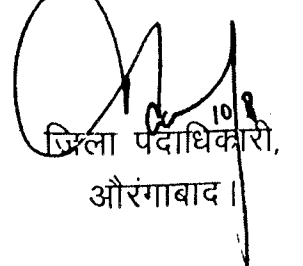 10/8
जिला पदाधिकारी,
औरंगाबाद।